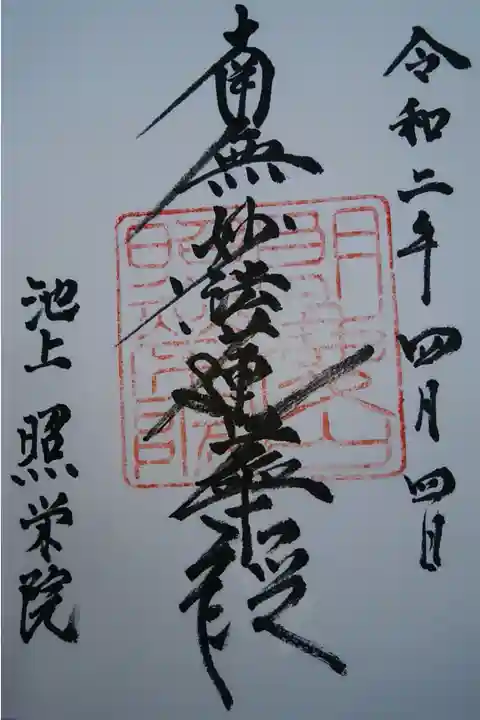 令和二年四月四日
南無妙法蓮華経
池上 照栄院